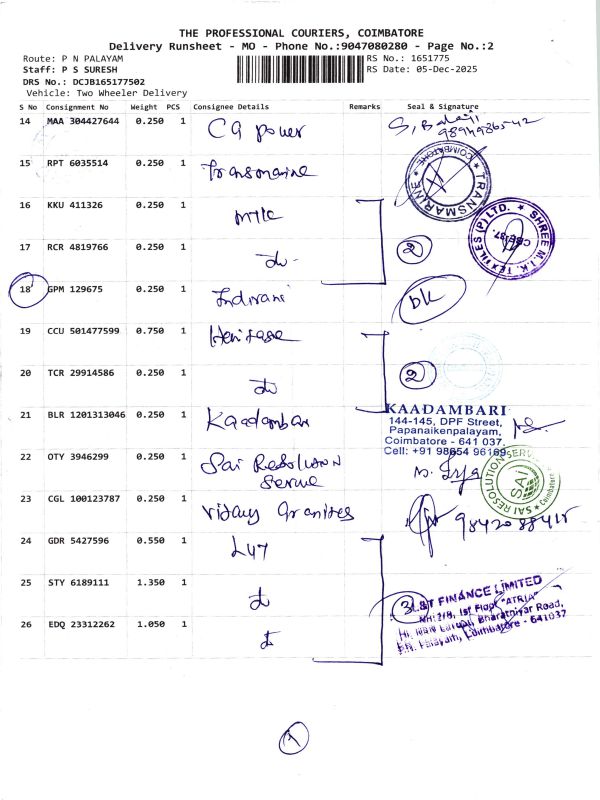 THE PROFESSIONAL COURIERS, COIMBATORE
Delivery Runsheet - MO - Phone No.:9047080280 - Page No.:2
Route: P N PALAYAM
RS No.: 1651775
Staff: P S SURESH
RS Date: 05-Dec-2025
DRS No.: DCJB165177502
Vehicle: Two Wheeler Delivery
S No Consignment No Weight PCS Consignee Details Remarks Seal & Signature
14 MAA 304427644 0.250 1 CG power S. Balaji
9894986542
15 RPT 6035514 0.250 1 Transmarine
TRANSMARINE * COIMBATORE *
16 KKU 411326 0.250 1 MIK
SHREE M.I.K. TEXTILES (P) LTD. * CBE-37.
17 RCR 4819766 0.250 1 do 2
18 GPM 129675 0.250 1 Indirani bk
19 CCU 501477599 0.750 1 Heritage
20 TCR 29914586 0.250 1 do 2
21 BLR 1201313046 0.250 1 Kaadambari
KAADAMBARI
144-145, DPF Street,
Papanaikenpalayam,
Coimbatore - 641 037.
Cell: +91 98654 96169
22 OTY 3946299 0.250 1 Sai Resolution
Service
SAI RESOLUTION SERVICE * Coimbatore *
SAI
23 CGL 100123787 0.250 1 Vijay Granites 9842088415
24 GDR 5427596 0.550 1 L&T
25 STY 6189111 1.350 1 do 3
L&T FINANCE LIMITED
NH:2/9, 1st Floor "ATRIA"
Bharathiyar Road,
P.N. Palayam, Coimbatore - 641037
26 EDQ 23312262 1.050 1 do